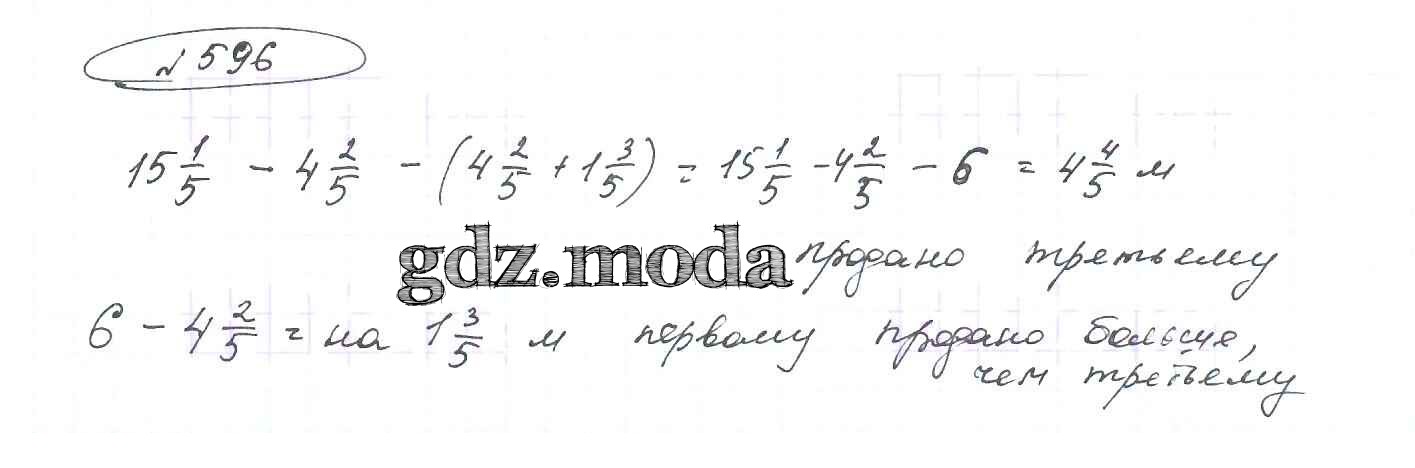 № 596
15 1/5 - 4 2/5 - (4 2/5 + 1 3/5) = 15 1/5 - 4 2/5 - 6 = 4 4/5 м
gdz.moda продано третьему
6 - 4 2/5 = на 1 3/5 м первому продано больше,
чем третьему